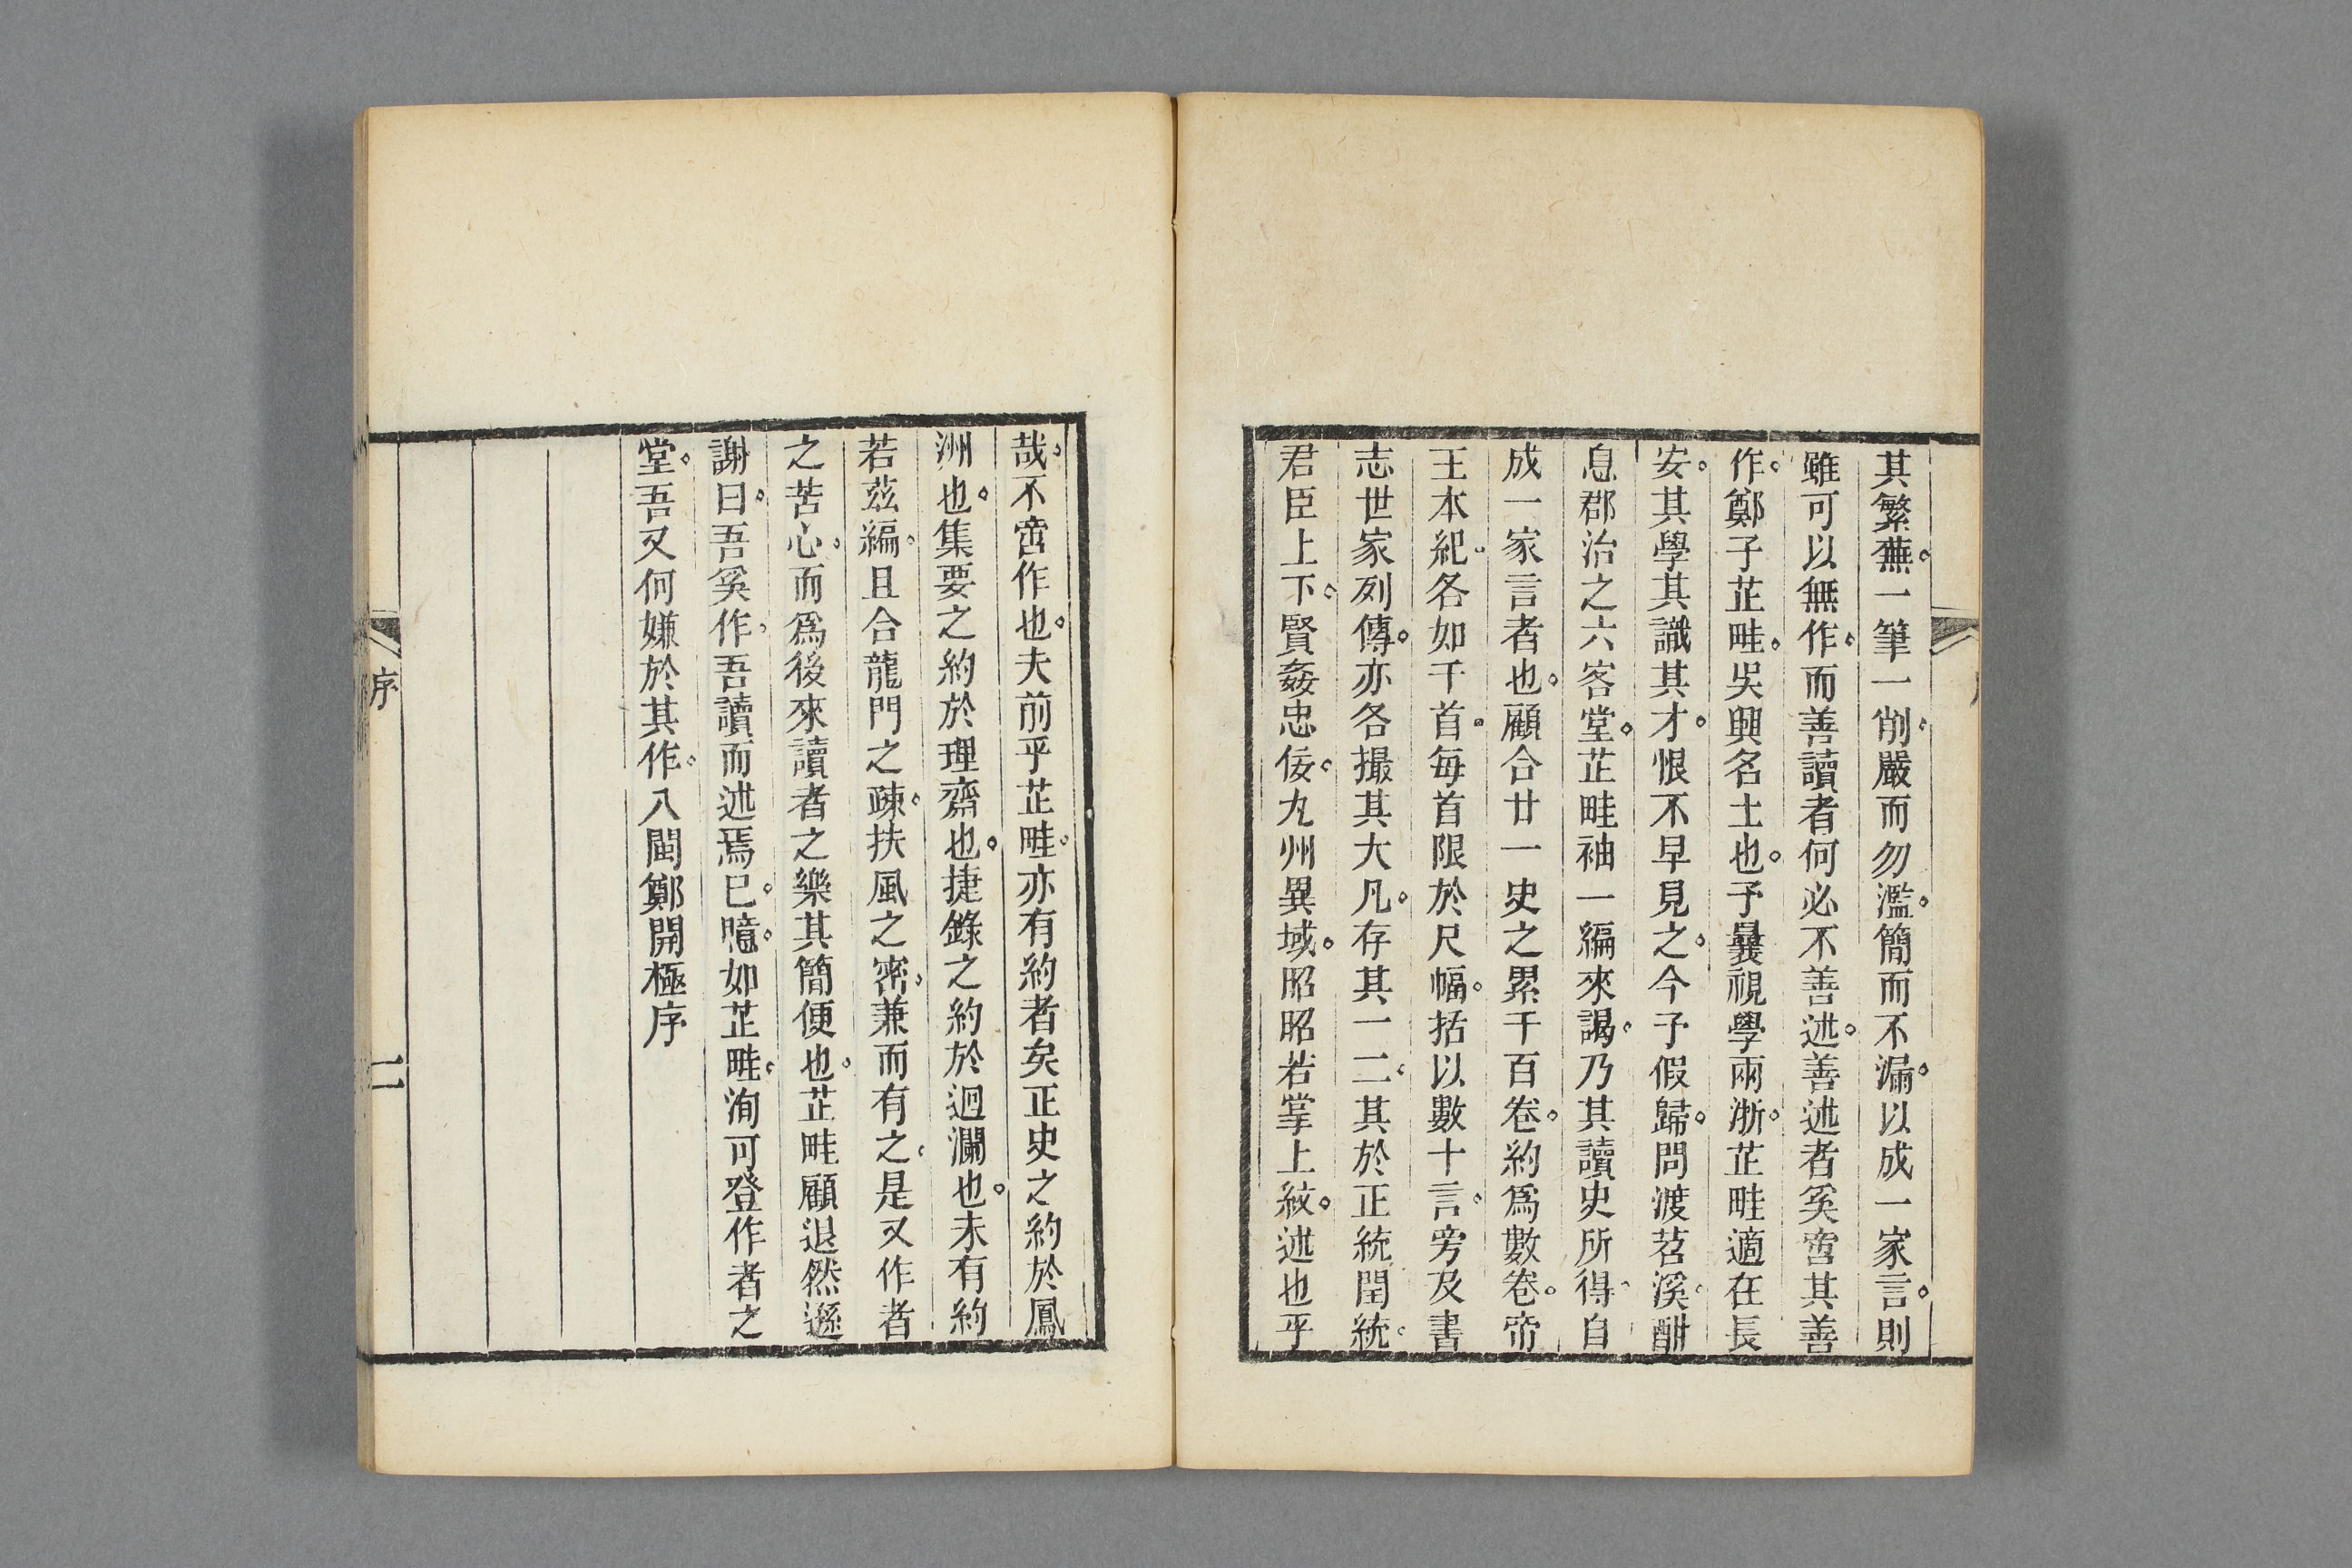 其繁蕪。一筆一削。嚴而勿濫。簡而不漏。以成一家言。則
雖可以無作。而善讀者何必不善述。善述者奚啻其善
作。鄭子芷畦。吳興名士也。予曩視學兩浙。芷畦適在長
安。其學其識其才。恨不早見之。今予假歸。問渡苕溪。酣
息郡治之六客堂。芷畦袖一編來謁。乃其讀史所得。自
成一家言者也。顧合廿一史之累千百卷。約爲數卷。帝
王本紀。各如干首。每首限於尺幅。括以數十言。旁及書
志世家列傳。亦各撮其大凡。存其一二。其於正統閏統。
君臣上下。賢姦忠佞。九州異域。昭昭若掌上紋。述也乎
哉。不啻作也。夫前乎芷畦。亦有約者矣正史之約於鳳
洲也。集要之約於理齋也。捷錄之約於迴瀾也。未有約
若茲編。且合龍門之疎。扶風之密。兼而有之。是又作者
之苦心。而爲後來讀者之樂其簡便也。芷畦顧退然遜
謝曰。吾奚作。吾讀而述焉已。噫。如芷畦。洵可登作者之
堂。吾又何嫌於其作。八閩鄭開極序
序
二